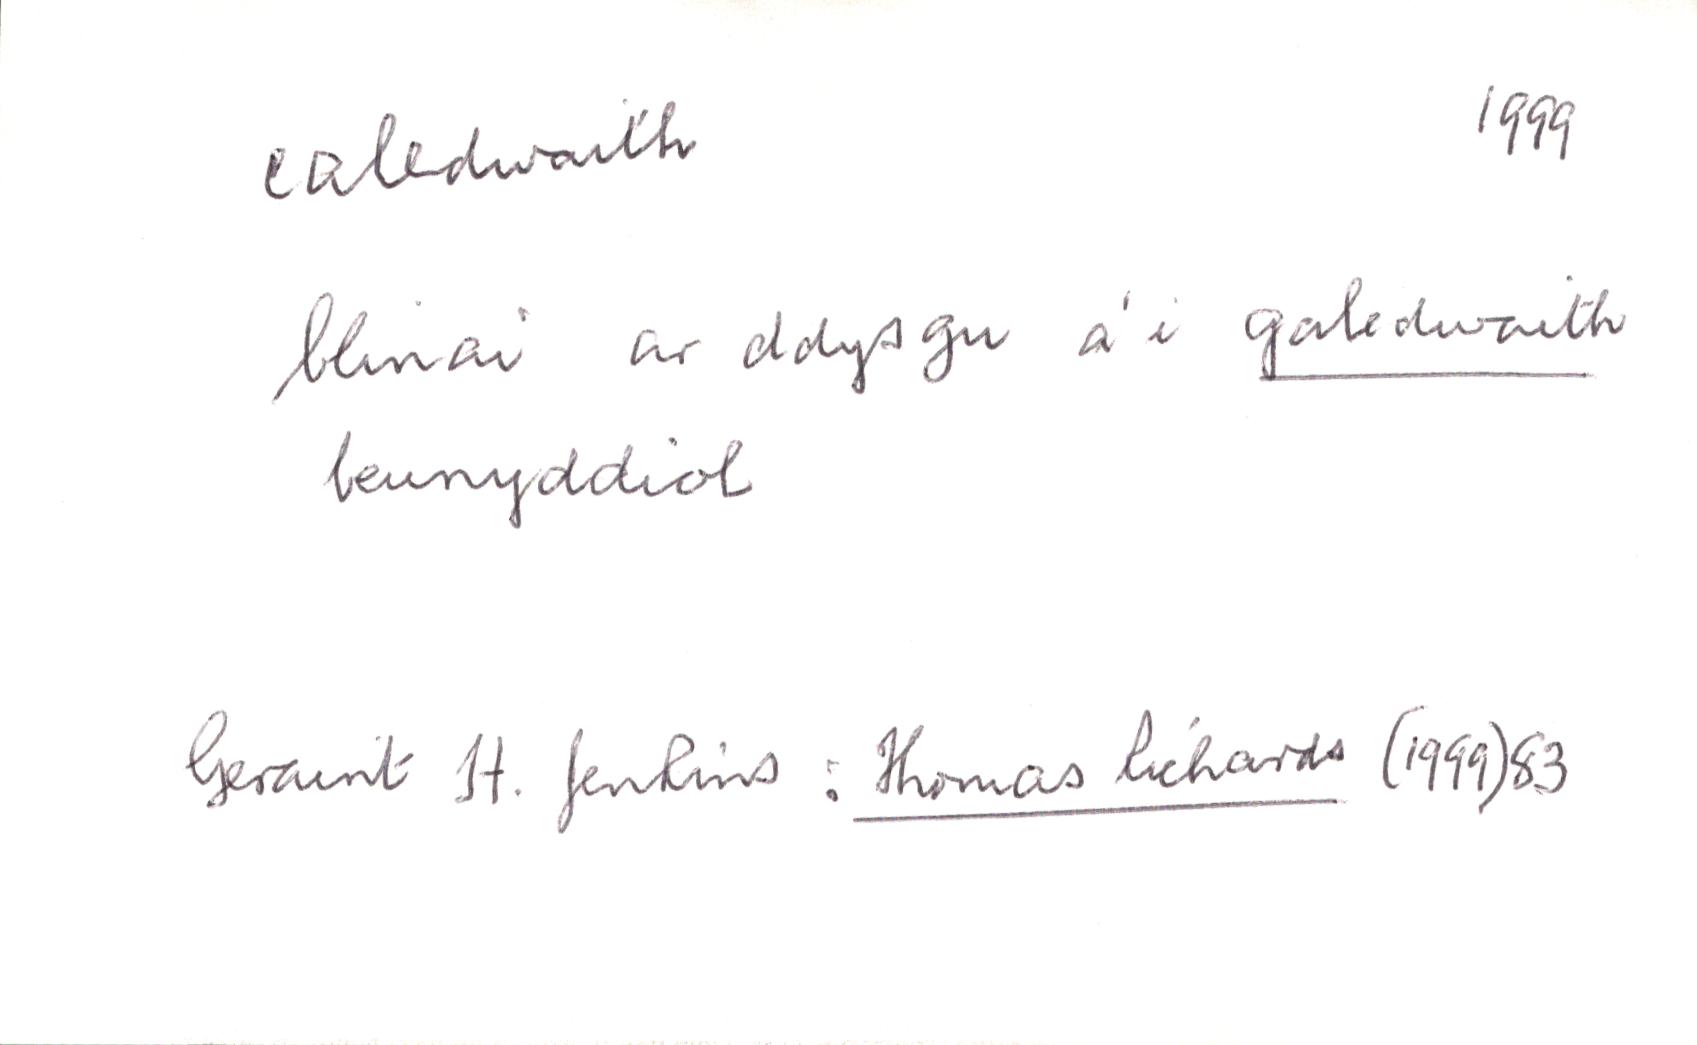 caledwaith 1999
blinai ar ddysgu a'i galedwaith
beunyddiol
Geraint H. Jenkins : Thomas Richards (1999) 83